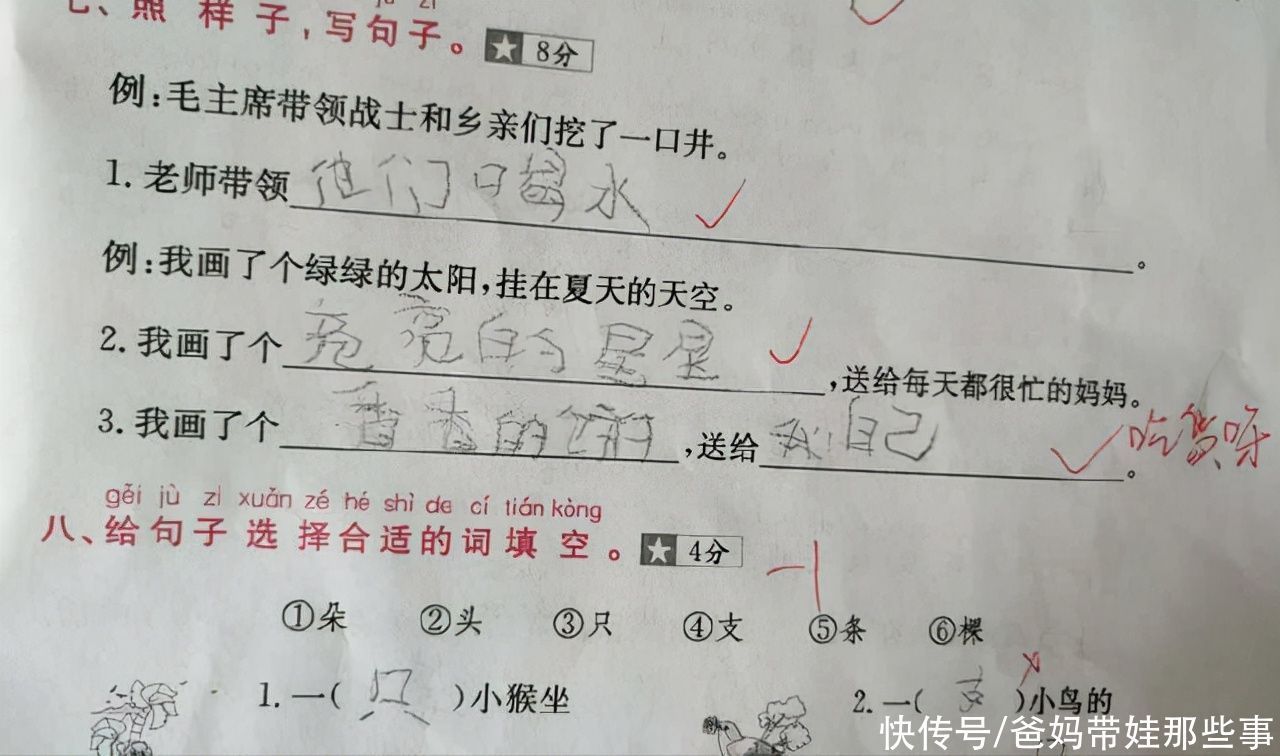 七、照样子,写句子。 ★ 8分
例:毛主席带领战士和乡亲们挖了一口井。
1. 老师带领他们喝水。
例:我画了个绿绿的太阳,挂在夏天的天空。
2. 我画了个亮亮的星星,送给每天都很忙的妈妈。
3. 我画了个香香的饼,送给我自己。 吃货呀
gěi jù zi xuǎn zé hé shì de cí tián kòng
八、给句子选择合适的词填空。 ★ 4分
-1
①朵 ②头 ③只 ④支 ⑤条 ⑥棵
1. 一(只)小猴坐 2. 一(支)小鸟的
快传号/爸妈带娃那些事